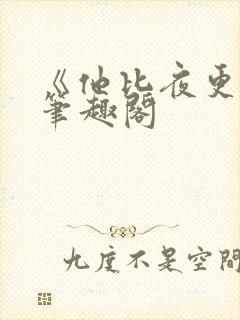 《他比夜更
筆趣閣
九度不是空間